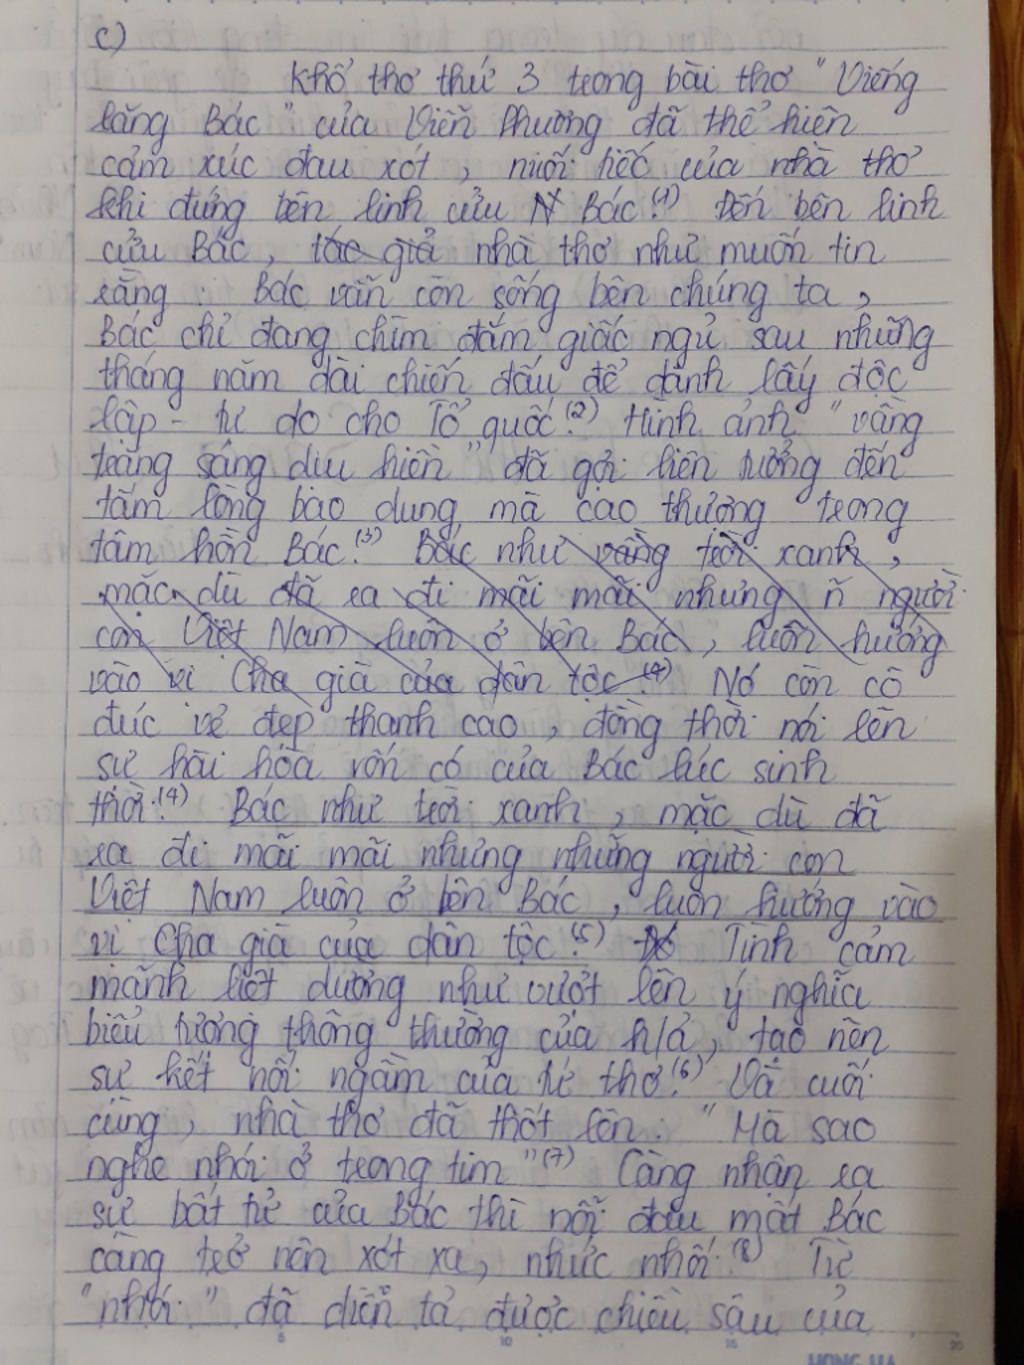 c)
Khổ thơ thứ 3 trong bài thơ "Viếng
lăng Bác" của Viễn Phương đã thể hiện
cảm xúc đau xót, nuối tiếc của nhà thơ
khi đứng bên linh cửu N Bác.(1) Đến bên linh
cửu Bác, tác giả nhà thơ như muốn tin
rằng: Bác vẫn còn sống bên chúng ta,
Bác chỉ đang chìm đắm giấc ngủ sau những
tháng năm dài chiến đấu để dành lấy độc
lập - tự do cho Tổ quốc.(2) Hình ảnh "vầng
trăng sáng dịu hiền" đã gợi liên tưởng đến
tấm lòng bao dung mà cao thượng trong
tâm hồn Bác.(3) Bác như vầng trời xanh,
mặc dù đã ra đi mãi mãi nhưng ñ người
con Việt Nam luôn ở bên Bác, luôn hướng
vào vị Cha già của dân tộc.(4) Nó còn cô
đúc vẻ đẹp thanh cao, đồng thời nói lên
sự hài hòa vốn có của Bác lúc sinh
thời.(4) Bác như trời xanh, mặc dù đã
ra đi mãi mãi nhưng những người con
Việt Nam luôn ở bên Bác, luôn hướng vào
vị Cha già của dân tộc.(5) Tình cảm
mãnh liệt dường như vượt lên ý nghĩa
biểu tượng thông thường của h/ả, tạo nên
sự kết nối ngầm của tứ thơ.(6) Và cuối
cùng, nhà thơ đã thốt lên: "Mà sao
nghe nhói ở trong tim"(7) Càng nhận ra
sự bất tử của Bác thì nỗi đau mất Bác
càng trở nên xót xa, nhức nhối.(8) Từ
"nhói" đã diễn tả được chiều sâu của
HONG HA